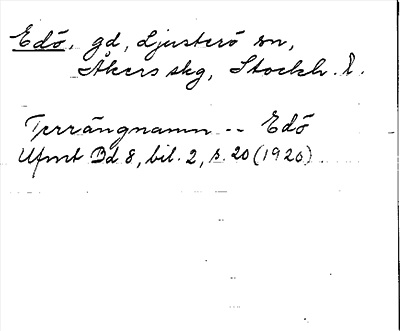 Edö, gd, Ljusterö sn,
Åkers skg, Stockh. l.
Terrängnamn -- Edö
Ufmt Bd 8, bil. 2, s. 20 (1920).